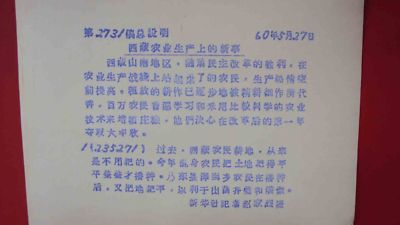 第2731稿总说明 60年5月27日
西藏农业生产上的新事
西藏山南地区，随着民主改革的胜利，在
农业生产战线上站起来了的农民，生产热情空
前提高。粗放的耕作已逐步地被精耕细作所代
替，百万农民普遍学习和采用比较科学的农业
技术来增种庄稼，他們决心在改革后的第一年
夺取大丰收。
1(235271) 过去，西藏农民耕地，从来
是不用耙的。今年翻身农民把土地耙得平
平整整才播种。乃东县 乡农民在播种
后，又把地耙平，以利于出苗齐 和灌溉。
新华社记者